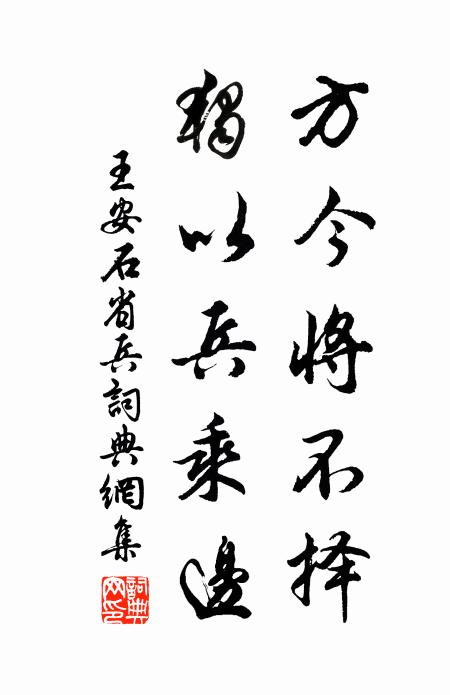 方今将不择
獨以兵乘邊
王安石省兵詞典網集
詞典網印